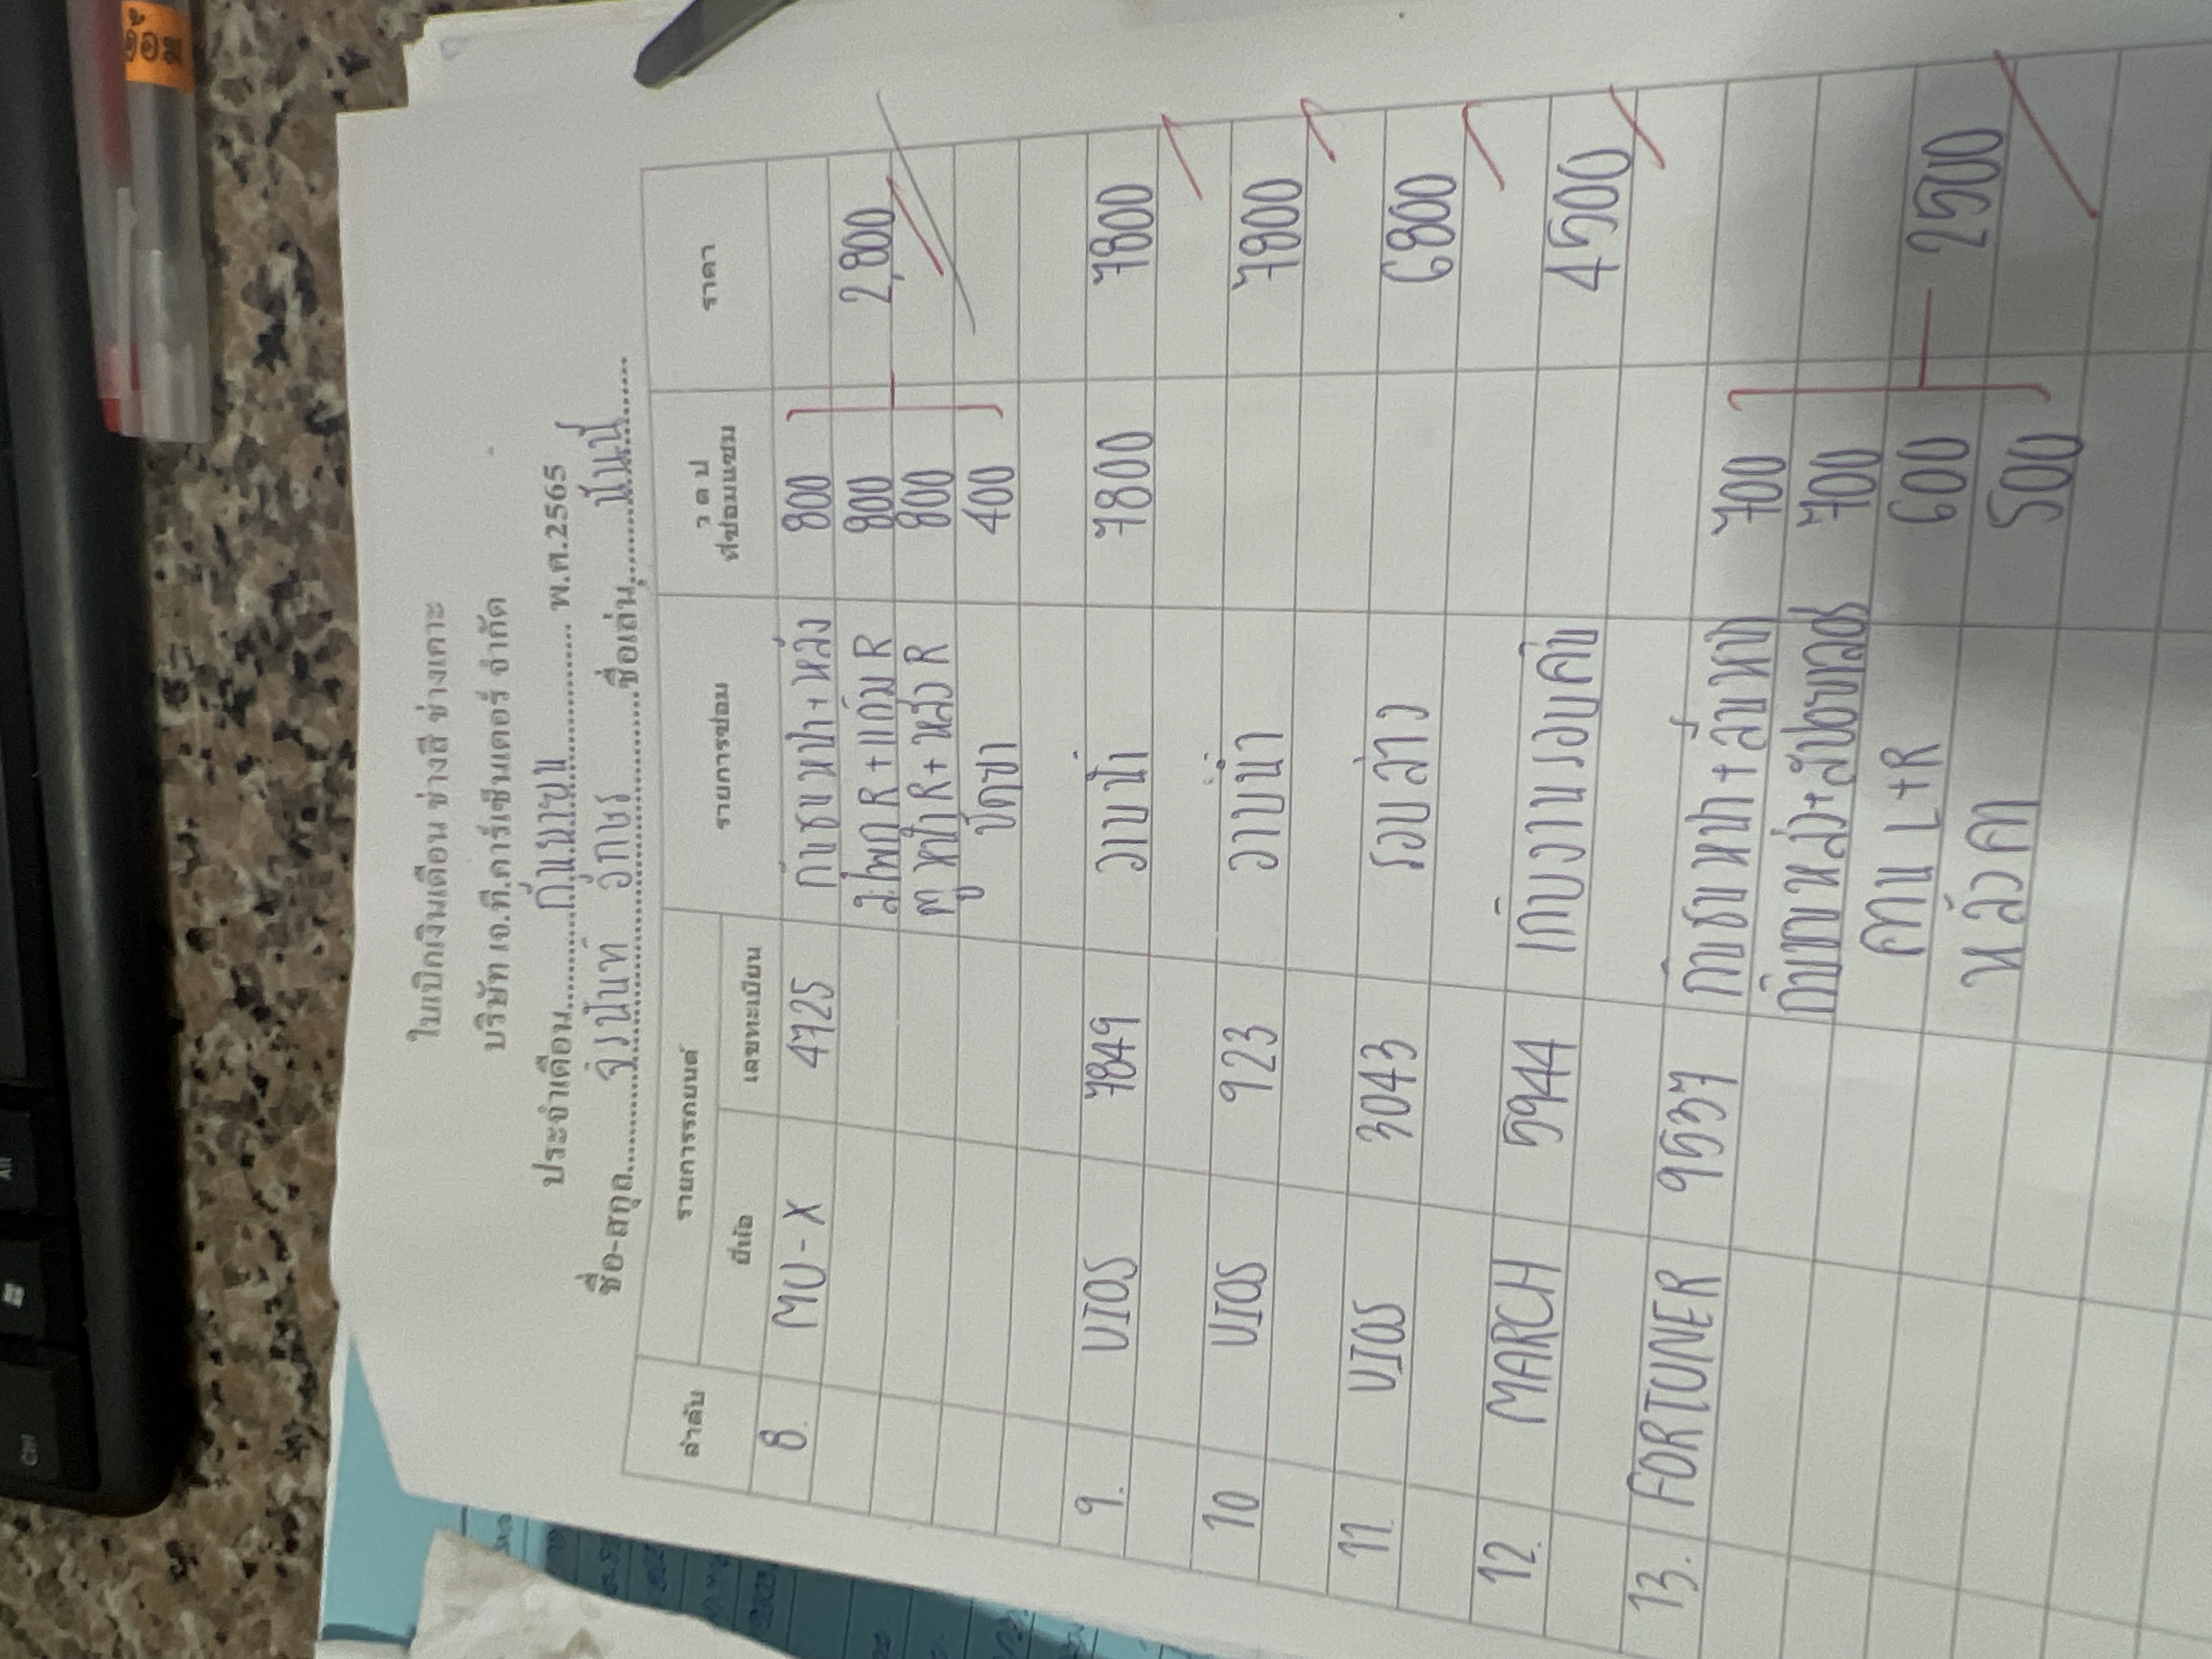 ใบเบิกเงินเดือน ช่างสี ช่างเคาะ
บริษัท เจ.ที.คาร์เซ็นเตอร์ จำกัด
ประจำเดือน.....กันยายน..... พ.ศ.2565
ชื่อ-สกุล..... อักษร .....ชื่อเล่น.....
ลำดับ รายการรถยนต์ รายการซ่อม ว ด ป ที่ซ่อมแซม ราคา
ยี่ห้อ เลขทะเบียน
8. MU-X 4725 กันชนหน้า+หลัง 800
R+แก้ม R 800 2,800
ตู หน้า R+หลัง R 800
ปัดเงา 400
9. VIOS 7849 วางน้ำ 7800 7800
10 VIOS 923 วางน้ำ 7800
11. VIOS 3043 รอบล่าง 6800
12. MARCH 5944 เก็บงานรอบคัน 4500
13. FORTUNER 9537 กันชนหน้า+ลิ้นหน้า 700
กันชนหลัง+สปอยเลอร์ 700
คาน L+R 600 2500
หลังคา 500
Alt
Ctrl